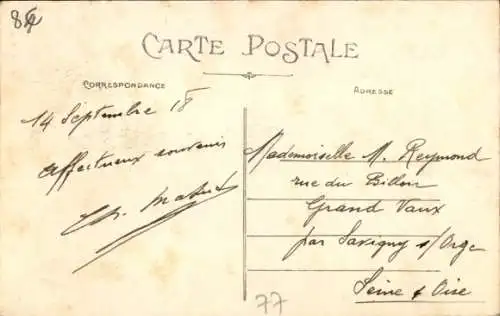 CARTE POSTALE
CORRESPONDANCE
ADRESSE
14 Septembre 18
affectueux souvenir
Mademoiselle M. Reymond
rue du Billon
Grand Vaux
par Savigny s/Orge
Seine & Oise
77